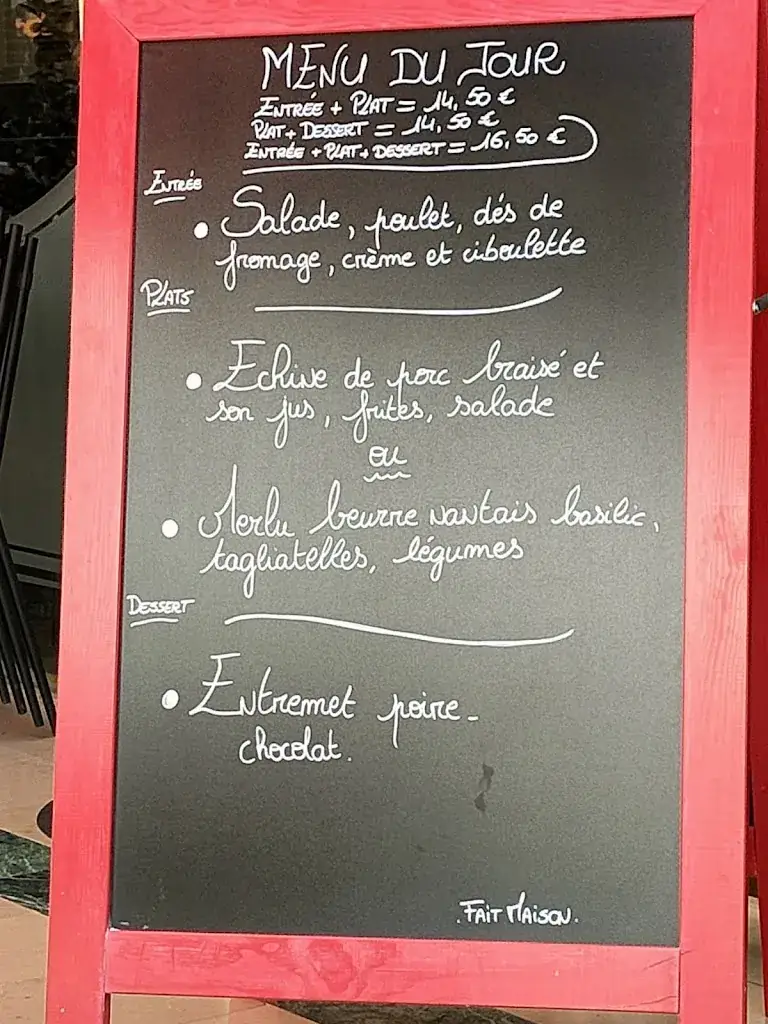 MENU DU JOUR
ENTRÉE + PLAT = 14,50 €
PLAT + DESSERT = 14,50 €
ENTRÉE + PLAT + DESSERT = 16,50 €
ENTRÉE
• Salade, poulet, dés de
fromage, crème et ciboulette
PLATS
• Echine de porc braisé et
son jus, frites, salade
ou
• Merlu beurre nantais basilic,
tagliatelles, légumes
DESSERT
• Entremet poire-
chocolat.
.FAIT MAISON.